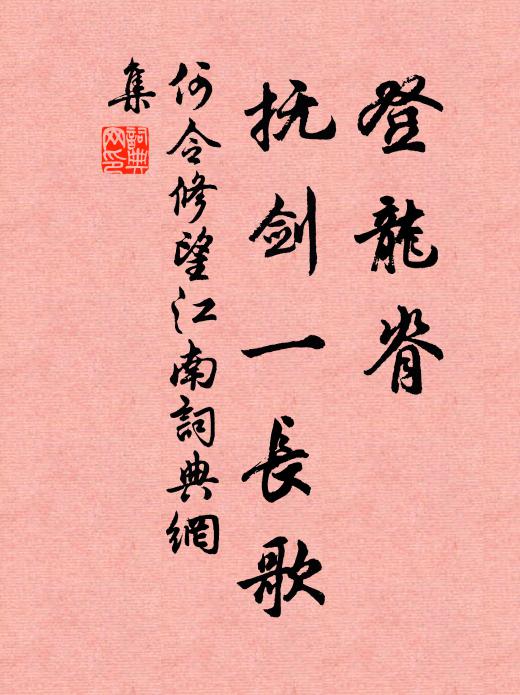 登龍脊
抚剑一長歌
何令修望江南詞典網
集
詞典
网印